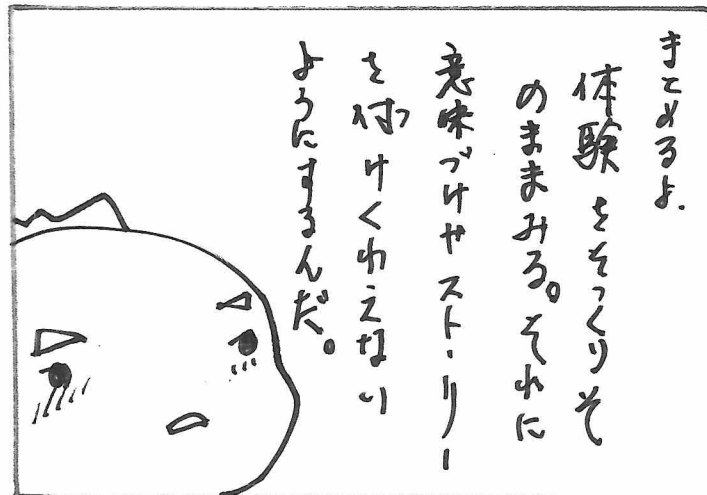 まとめるよ.
体験をそっくりそ
のままみる。それに
意味づけやストーリー
を付けくわえない
ようにするんだ。